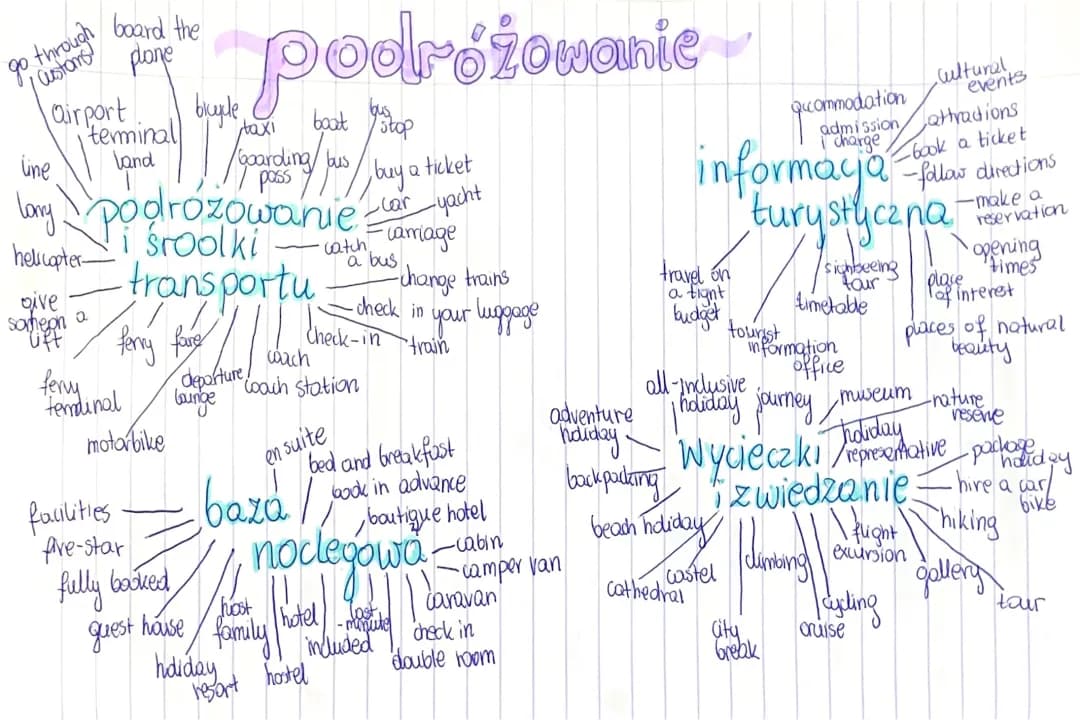 podróżowanie
go through
customs
board the
plane
airport
terminal
land
bicycle
taxi
boarding
pass
boat
bus
bus
stop
buy a ticket
car
yacht
carriage
line
lorry
helicopter
podróżowanie
i środki
transportu
catch
a bus
change trains
check in your luggage
train
check-in
give
someon a
lift
ferry
fare
coach
departure
lounge
coach station
ferry
terminal
motorbike
informacja
turystyczna
accommodation
admission
charge
cultural
events
attractions
book a ticket
follow directions
make a
reservation
opening
times
place
of interest
places of natural
beauty
sighseeing
tour
timetable
tourist
information
office
travel on
a tight
budget
baza
noclegowa
en suite
bed and breakfast
book in advance
boutique hotel
cabin
camper van
caravan
check in
double room
facilities
five-star
fully booked
guest house
holiday
resort
host
family
hostel
hotel
included
last
-minute
wycieczki
i zwiedzanie
all-inclusive
holiday
journey
museum
nature
reserve
holiday
representative
package
holiday
hire a car/
bike
hiking
tour
gallery
flight
excursion
cycling
cruise
climbing
city
break
castel
cathedral
beach holiday
backpacking
adventure
holiday